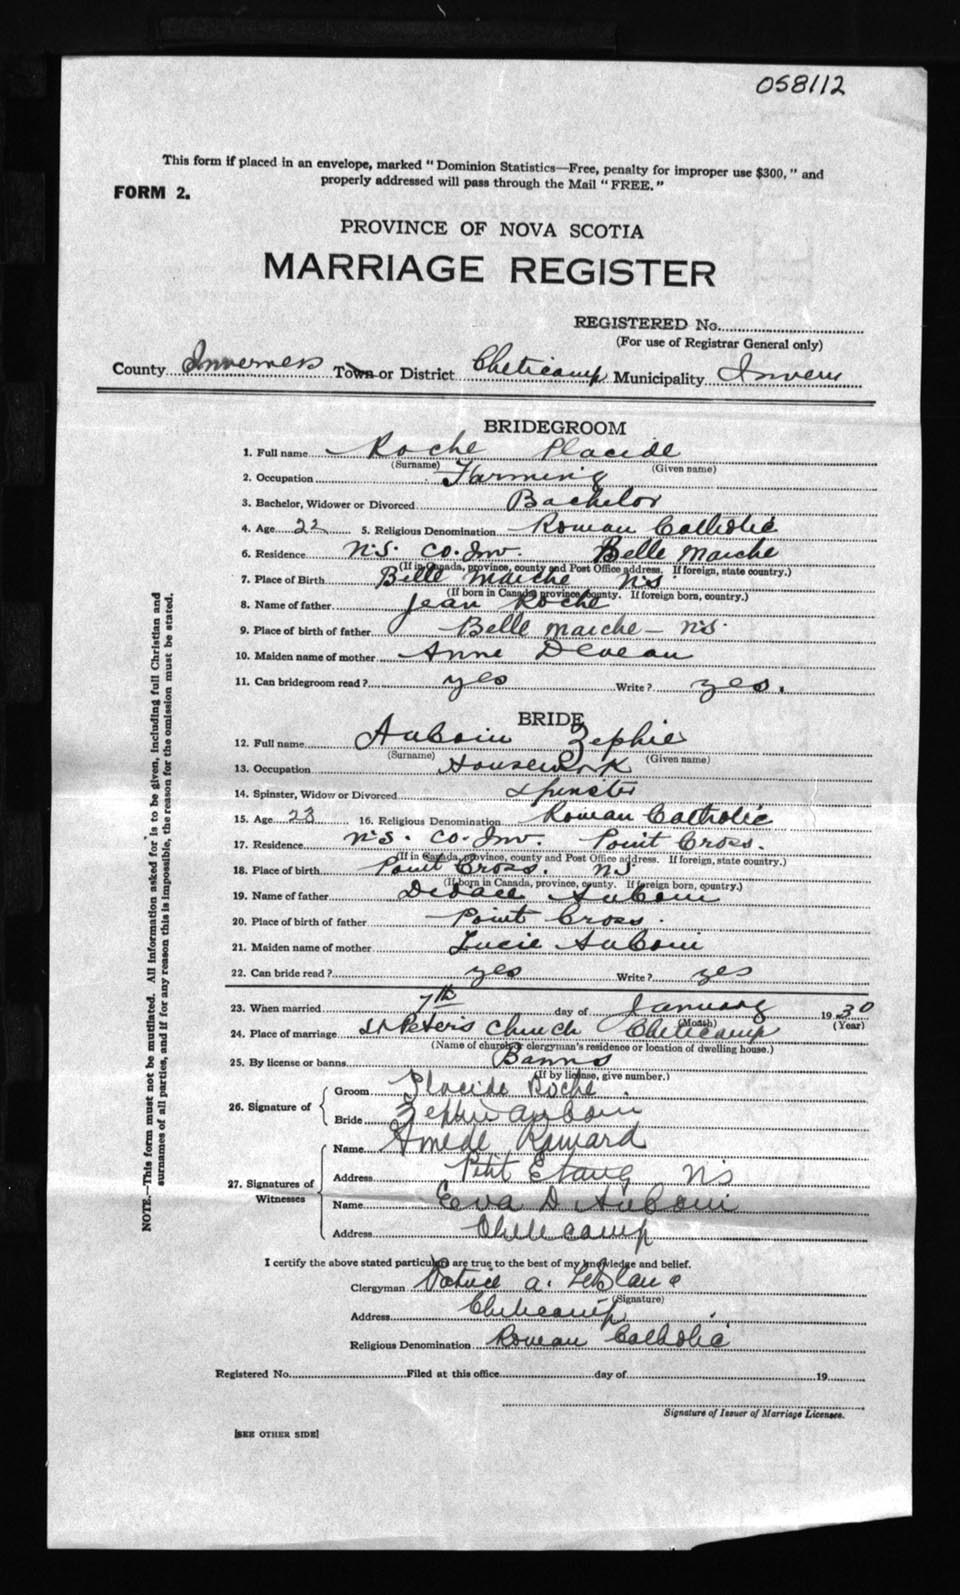 058112
This form if placed in an envelope, marked "Dominion Statistics—Free, penalty for improper use $300," and
properly addressed will pass through the Mail "FREE."
FORM 2.
PROVINCE OF NOVA SCOTIA
MARRIAGE REGISTER
REGISTERED No.
(For use of Registrar General only)
County Inverness Town or District Cheticamp Municipality Invern
BRIDEGROOM
1. Full name Roche Placide
(Surname) (Given name)
2. Occupation Farming
3. Bachelor, Widower or Divorced Bachelor
4. Age 22 5. Religious Denomination Roman Catholic
6. Residence N.S. Co. Inv. Belle Marche
(If in Canada, province, county and Post Office address. If foreign, state country.)
7. Place of Birth Belle Marche N.S.
(If born in Canada, province, county. If foreign born, country.)
8. Name of father Jean Roche
9. Place of birth of father Belle Marche - N.S.
10. Maiden name of mother Anne Deveau
11. Can bridegroom read? yes Write? yes.
BRIDE
12. Full name Auboin Zephie
(Surname) (Given name)
13. Occupation Housework
14. Spinster, Widow or Divorced Spinster
15. Age 23 16. Religious Denomination Roman Catholic
17. Residence N.S. Co. Inv. Point Cross.
(If in Canada, province, county and Post Office address. If foreign, state country.)
18. Place of birth Point Cross. NS
(If born in Canada, province, county. If foreign born, country.)
19. Name of father Didace Auboin
20. Place of birth of father Point Cross.
21. Maiden name of mother Lucie Auboin
22. Can bride read? yes Write? yes
23. When married 7th day of January 1930
(Month) (Year)
24. Place of marriage St Peter's Church Cheticamp
(Name of church, clergyman's residence or location of dwelling house.)
25. By license or banns Banns
(If by license, give number.)
26. Signature of
Groom Placide Roche.
Bride Zephie Auboin
27. Signatures of Witnesses
Name Amede
Address Petit Etang NS
Name Eva D Auboin
Address Cheticamp
I certify the above stated particulars are true to the best of my knowledge and belief.
Clergyman Patrice A. LeBlanc
(Signature)
Address Cheticamp
Religious Denomination Roman Catholic
Registered No. Filed at this office day of 19
Signature of Issuer of Marriage Licenses.
[SEE OTHER SIDE]
NOTE.—This form must not be mutilated. All information asked for is to be given, including full Christian and
surnames of all parties, and if for any reason this is impossible, the reason for the omission must be stated.